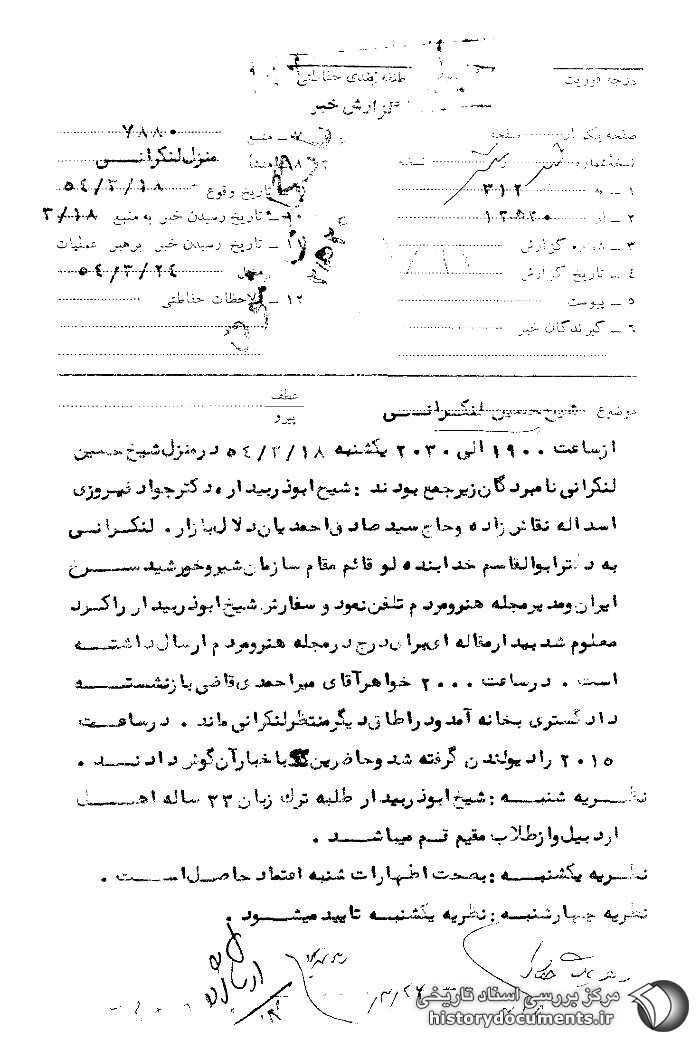 درجه فوریت
طبقه بندی حفاظتی
گزارش خبر
صفحه یک از صفحه
نسخه شماره از نسخه
۱ ـ به ۳۱۲
۲ ـ از ۱۲۵۲۰
۳ ـ شماره گزارش
۴ ـ تاریخ گزارش
۵ ـ پیوست
۶ ـ گیرندگان خبر
۷ ـ منبع ۷۸۸۰
۸ ـ منشأ منزل لنکرانی
۹ ـ تاریخ وقوع ۵۴/۳/۱۸
۱۰ ـ تاریخ رسیدن خبر به منبع ۳/۱۸
۱۱ ـ تاریخ رسیدن خبر برهبر عملیات
محل ۵۴/۳/۲۴
۱۲ ـ ملاحظات حفاظتی
موضوع شیخ حسین لنکرانی
عطف
پیرو
از ساعت ۱۹۰۰ الی ۲۰۳۰ یکشنبه ۵۴/۳/۱۸ در منزل شیخ حسین
لنکرانی نامبردگان زیر جمع بودند : شیخ ابوذر بیدار ، دکتر جواد
اسداله نقاش زاده و حاج سید صادق احمدیان دلال بازار . لنکرانی
به دکتر ابوالقاسم خدابنده لو قائم مقام سازمان شیر و خورشید سرخ
ایران و مدیر مجله هنر و مردم تلفن نمود و سفارش شیخ ابوذر بیدار را کرد
معلوم شد بیدار مقاله ای برای درج در مجله هنر و مردم ارسال داشته
است . در ساعت ۲۰۰۰ خواهر آقای میر احمدی قاضی بازنشسته
دادگستری بخانه آمد و در اطاق دیگر منتظر لنکرانی ماند . در ساعت
۲۰۱۵ رادیو لندن گرفته شد و حاضرین باخبار آن گوش دادند .
نظریه شنبه : شیخ ابوذر بیدار طلبه ترک زبان ۲۳ ساله اهل
اردبیل و از طلاب مقیم قم میباشد .
نظریه یکشنبه : بصحت اظهارات شنبه اعتماد حاصل است .
نظریه چهارشنبه : نظریه یکشنبه تایید میشود .
مرکز بررسی اسناد تاریخی
historydocuments.ir